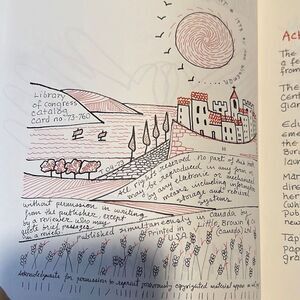 © 1973 by
Library
of congress
catalog
card no. 73-760
all rights reserved. no part of this book
may be reproduced in any form or
by any electronic or mechanical
means including information
storage and retrieval
systems
without permission in writing
from the publisher, except
by a reviewer who may
quote brief passages
in a
Published simultaneously in Canada by
Little, Brown &
(Canada) Ltd
Printed in
Acknowledgments for permission to reprint previously copyrighted material appear
Ack
The
a fe
from
The
Cent
gian
Edu
eme
the
Bur
lau
Mar
dire
her
whi
Pub
new
Tap
pap
to